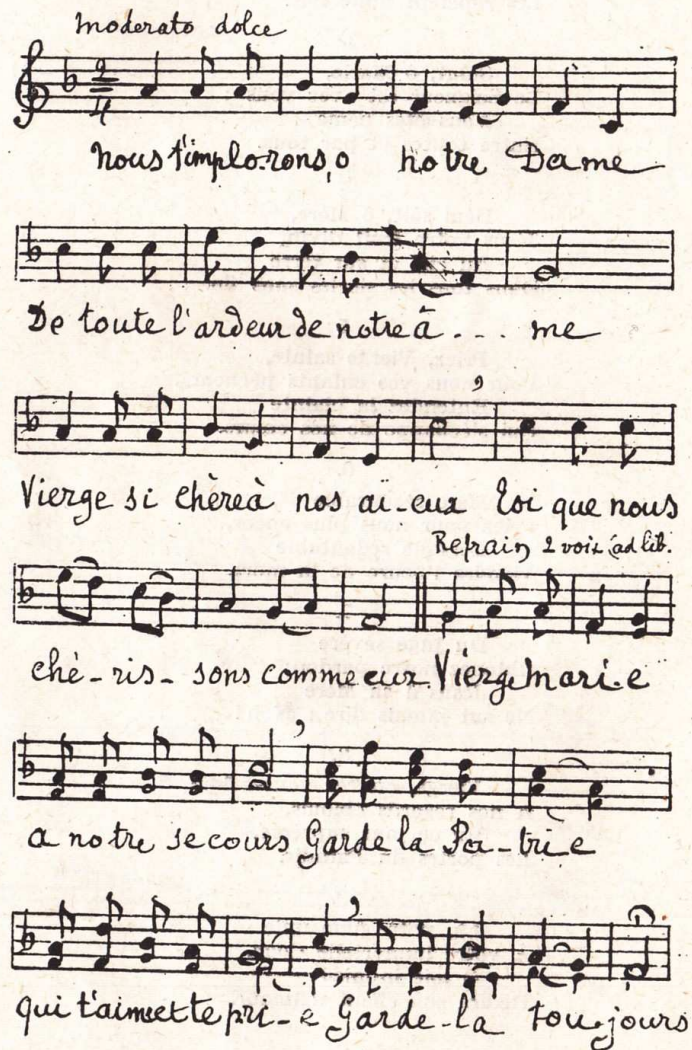 moderato dolce
2
4
nous t'implo-rons, o notre Dame
De toute l'ardeur de notre â . . . me
Vierge si chère à nos aï-eux Toi que nous
Refrain 2 voix ad lib.
ché-ris-sons comme eux. Vierge Mari-e
a notre secours Garde la Pa-tri-e
qui t'aime et te pri-e Garde-la toujours